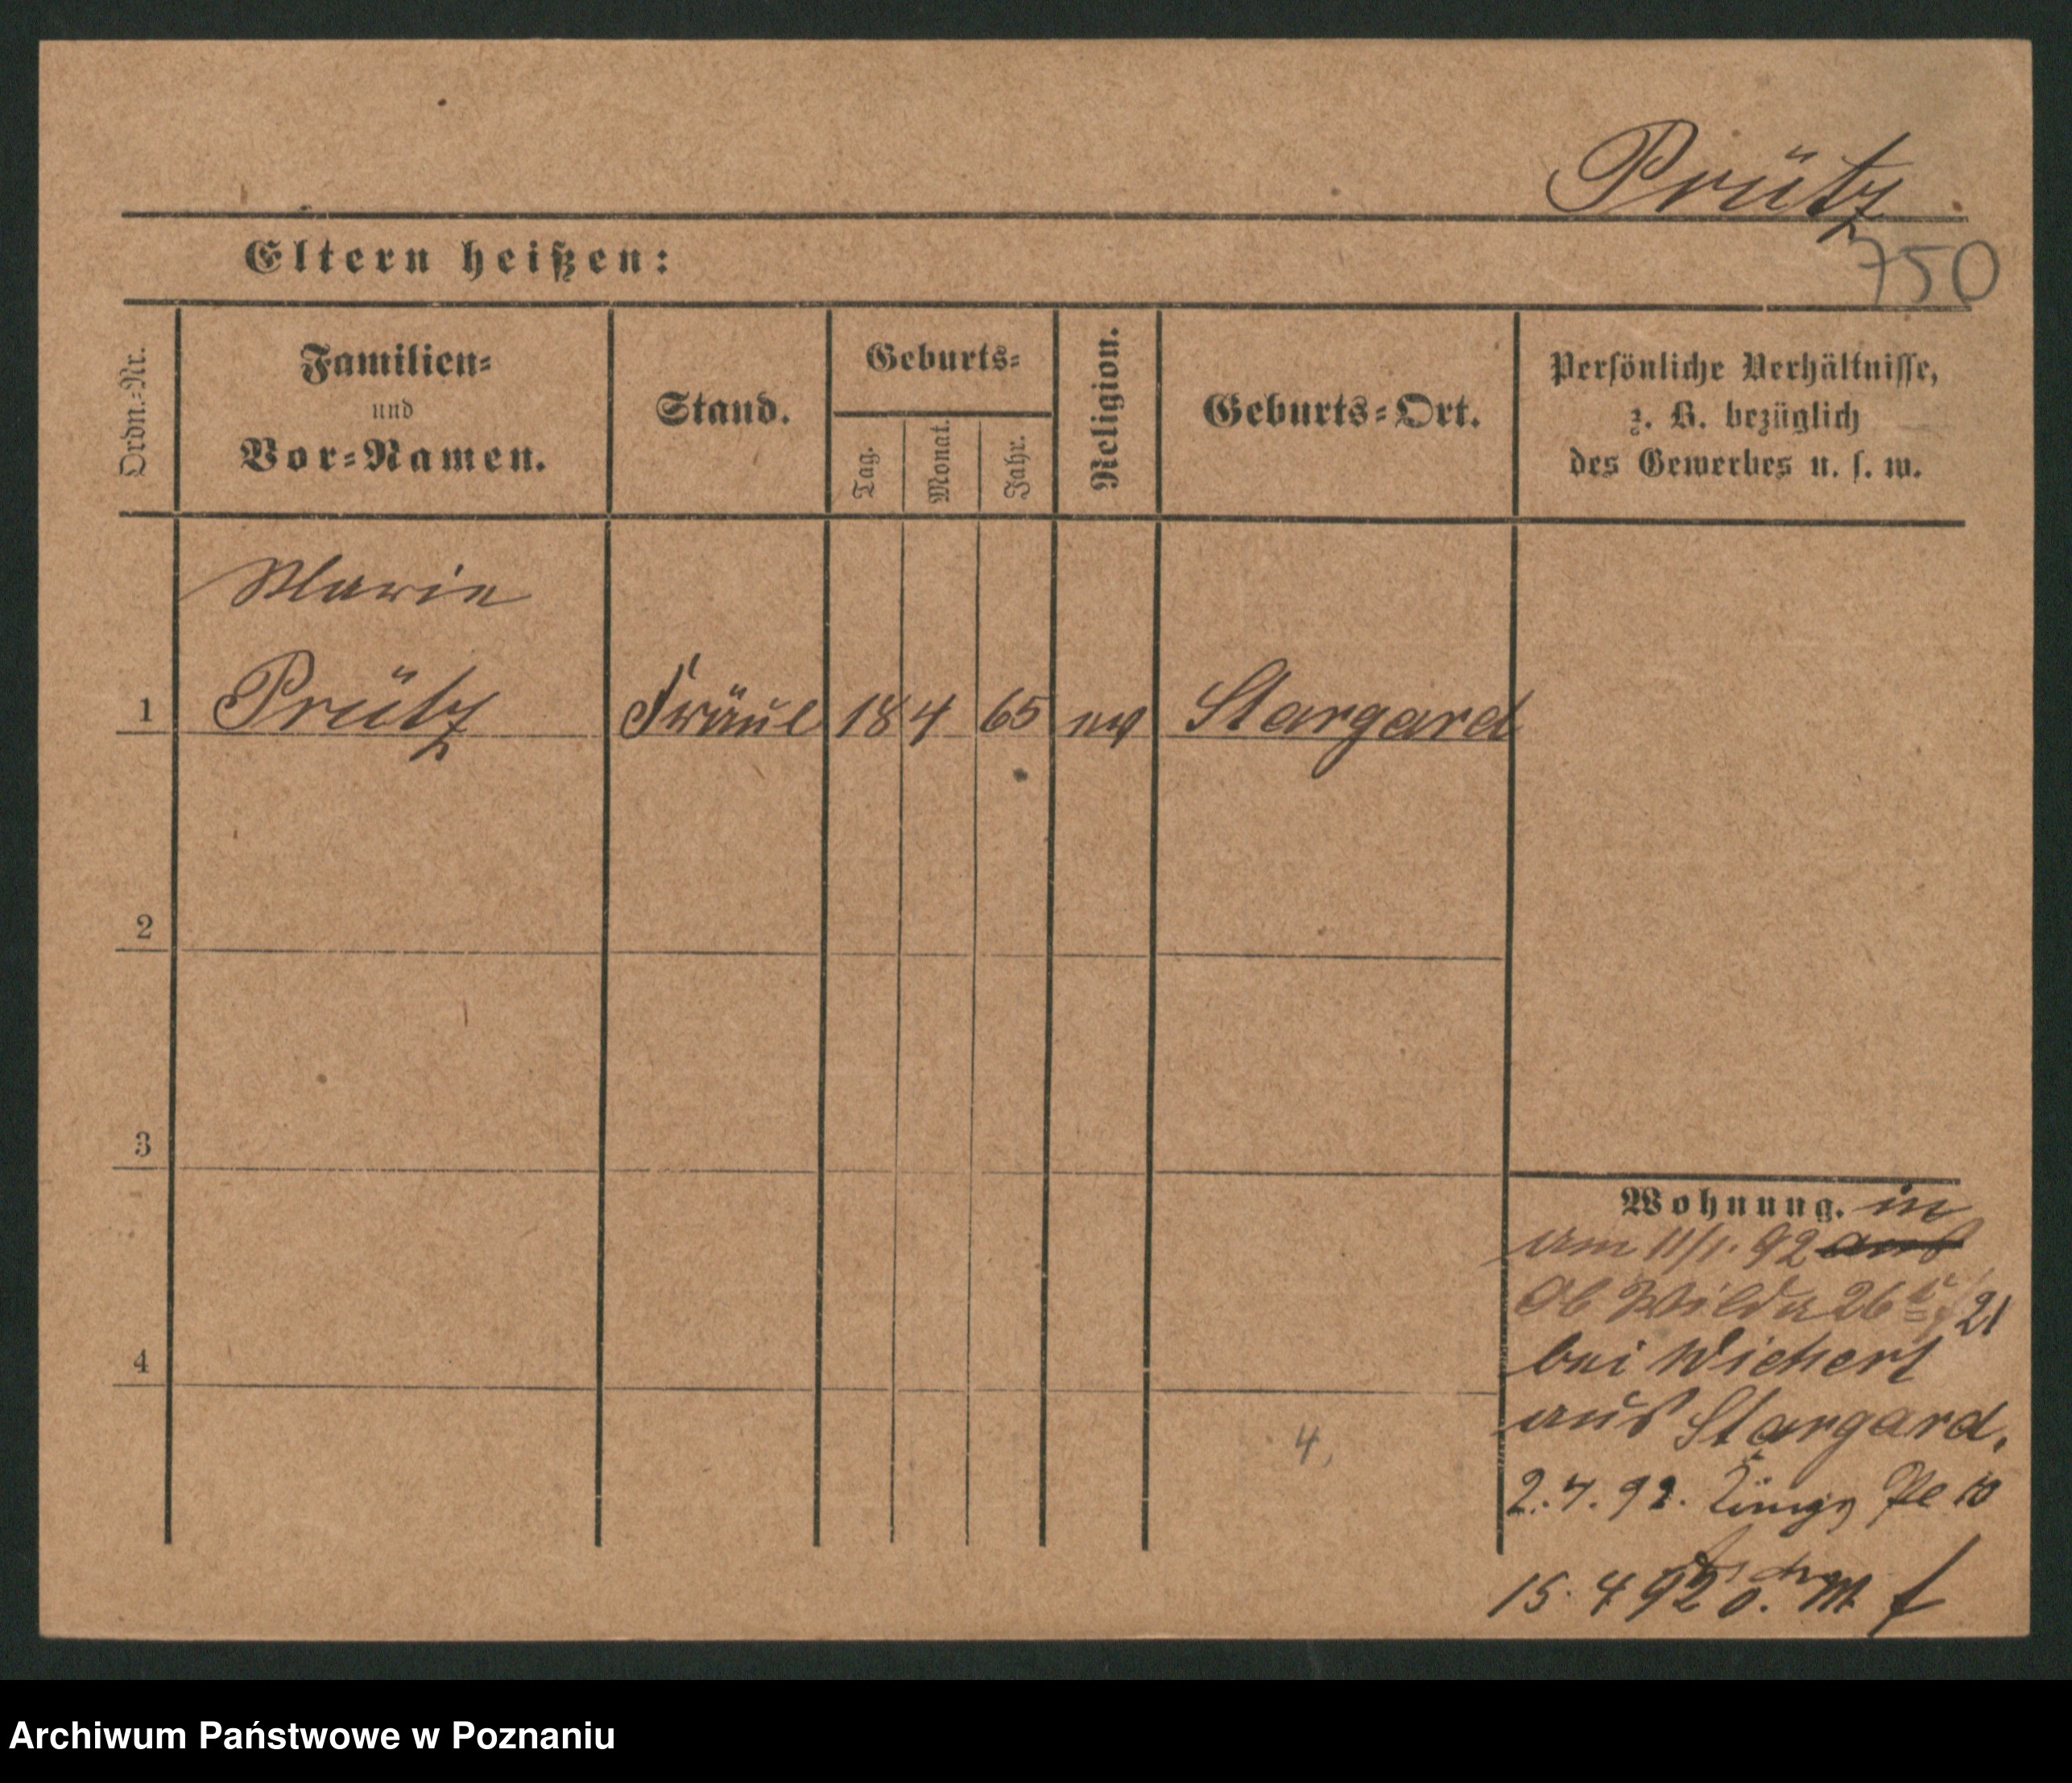 Prütz
750
Eltern heißen:
Ordn.-Nr.
Familien-
und
Vor-Namen.
Stand.
Geburts-
Tag.
Monat.
Jahr.
Religion.
Geburts-Ort.
Persönliche Verhältnisse,
z. B. bezüglich
des Gewerbes u. s. w.
Marie
1 Prütz Fräul 18 4 65 ev Stargard
2
3
4
Wohnung. in
am 11/1. 92 aus
Ob Wilda 26 21
bei Wichert
aus Stargard.
4,
2.4.92. Königs Pl 10
15. 4 92 o.
Archiwum Państwowe w Poznaniu